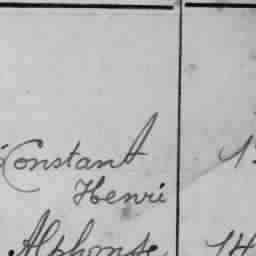 Constant
Henri
Alphonse 14